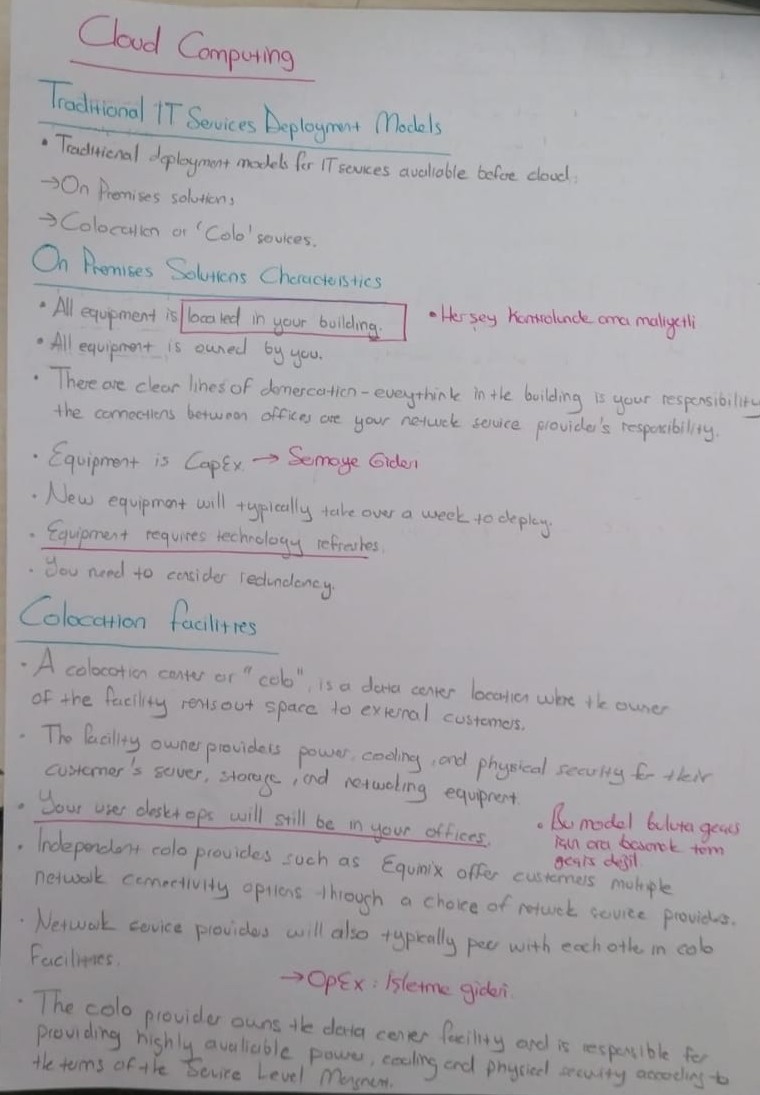 Cloud Computing
Traditional IT Services Deployment Models
• Traditional deployment models for IT services avaliable before cloud:
→ On Premises solution;
→ Colocation or 'Colo' sevices.
On Premises Solutions Characteristics
• All equipment is located in your building.
• Herşey kontrolünde ama maliyetli
• All equipment is owned by you.
• There are clear lines of demercation - eveythink in the building is your responsibility
the connections between offices are your netwok service provider's responsibility.
• Equipment is CapEx → Semaye Gideri
• New equipment will typically take over a week to deploy.
• Equipment requires technology refreshes.
• You need to consider redundancy.
Colocation facilities
• A colocation center or "colo", is a data center location where the owner
of the facility rents out space to external customers.
• The facility owner providers power, cooling, and physical security for their
customer's server, storage, and netwoking equipment.
• Your user desktops will still be in your offices.
• Bu model buluta geçiş
için ara basamak tam
geçiş değil
• Independent colo provides such as Equinix offer customers multiple
netwoak connectivity options through a choice of netwok service provides.
• Netwoak sevice providers will also typically peer with each othe in colo
Facilities.
→ OpEx : İşletme gideri.
• The colo provider owns the data center facility and is responsible for
providing highly avaliable power, cooling and physical security according to
the tems of the Sevice Level